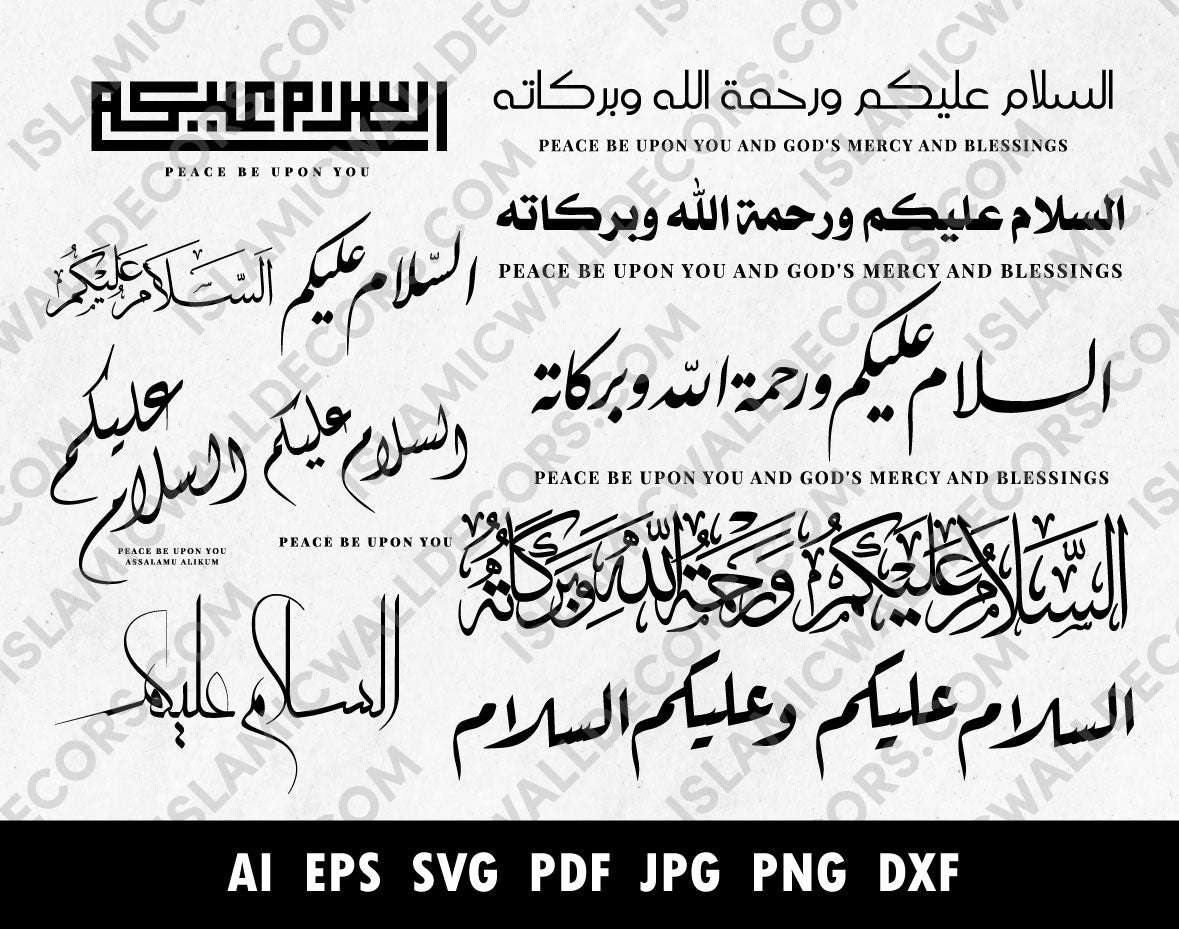 السلام عليكم
PEACE BE UPON YOU
السلام عليكم ورحمة الله وبركاته
PEACE BE UPON YOU AND GOD'S MERCY AND BLESSINGS
السلام عليكم ورحمة الله وبركاته
PEACE BE UPON YOU AND GOD'S MERCY AND BLESSINGS
السلام عليكم
السَّلَامُ عَلَيْكُمْ
السلام عليكم ورحمة الله وبركاتة
PEACE BE UPON YOU AND GOD'S MERCY AND BLESSINGS
السلام عليكم
PEACE BE UPON YOU
ASSALAMU ALIKUM
السلام عليكم
PEACE BE UPON YOU
السَّلَامُ عَلَيْكُمْ وَرَحْمَةُ اللَّهِ وَبَرَكَاتُهُ
السلام عليكم
السلام عليكم وعليكم السلام
AI EPS SVG PDF JPG PNG DXF
ISLAMICWALLDECORS.COM